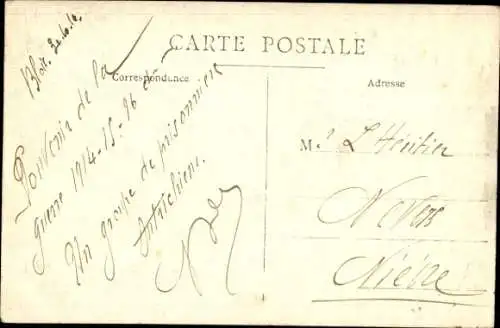 CARTE POSTALE
Correspondance
Adresse
Souvenir de la
guerre 1914-15-16
Un groupe de prisonniers
Autrichiens.
M. L'Héritier
Nevers
Nièvre